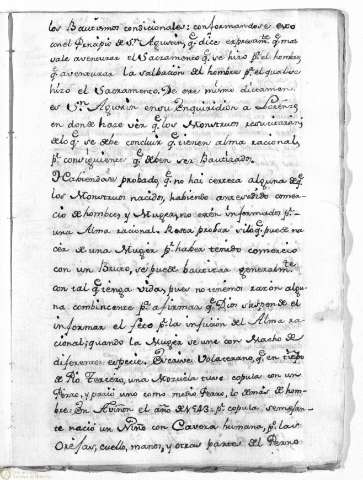 los Bautismos condicionales: conformandose esto
con el Principio de Sn. Agustin, q. dice expresamte. q. mas
vale aventurar el Sacramento q. se hizo pa. el hombre,
q. aventurar la salbacion del hombre pr. el qual se
hizo el Sacramento. De este mismo dictamen
es Sn. Agustin en su Enquiridion a Lorenzo,
en donde hace ver q. los Monstruos resucitarán;
de lo q. se debe concluir q. tienen alma racional,
pr. consiguiente q. deben ser Bautizados.
Habiendose probado, q. no hai certeza alguna de q.
los Monstruos nacidos, habiendo antecedido comer-
cio de hombre, y Muger, no estén informados pr.
una Alma racional. Resta probar si lo q. puede na
cér de una Muger pr. haber tenido comercio
con un Bruto, se puede bautizar generalmte.
con tal q. tenga vida, pues no tenemos razón algu
na combincente pa. afirmar q. Dios suspende el
informar el feto pr. la infusion del Alma ra-
cional; quando la Muger se une con Macho de
diferente especie. Escribe Volaterano, q. en tiempo
de Pio Tercero, una Mozuela tuvo copula con un
Perro, y parió uno como medio Perro, lo demás de hom-
bre: En Aviñon el año de 1543. pr. copula semejan-
te nació un Niño con Caveza humana, pr. las
Orejas, cuello, manos, y otras partes de Perro